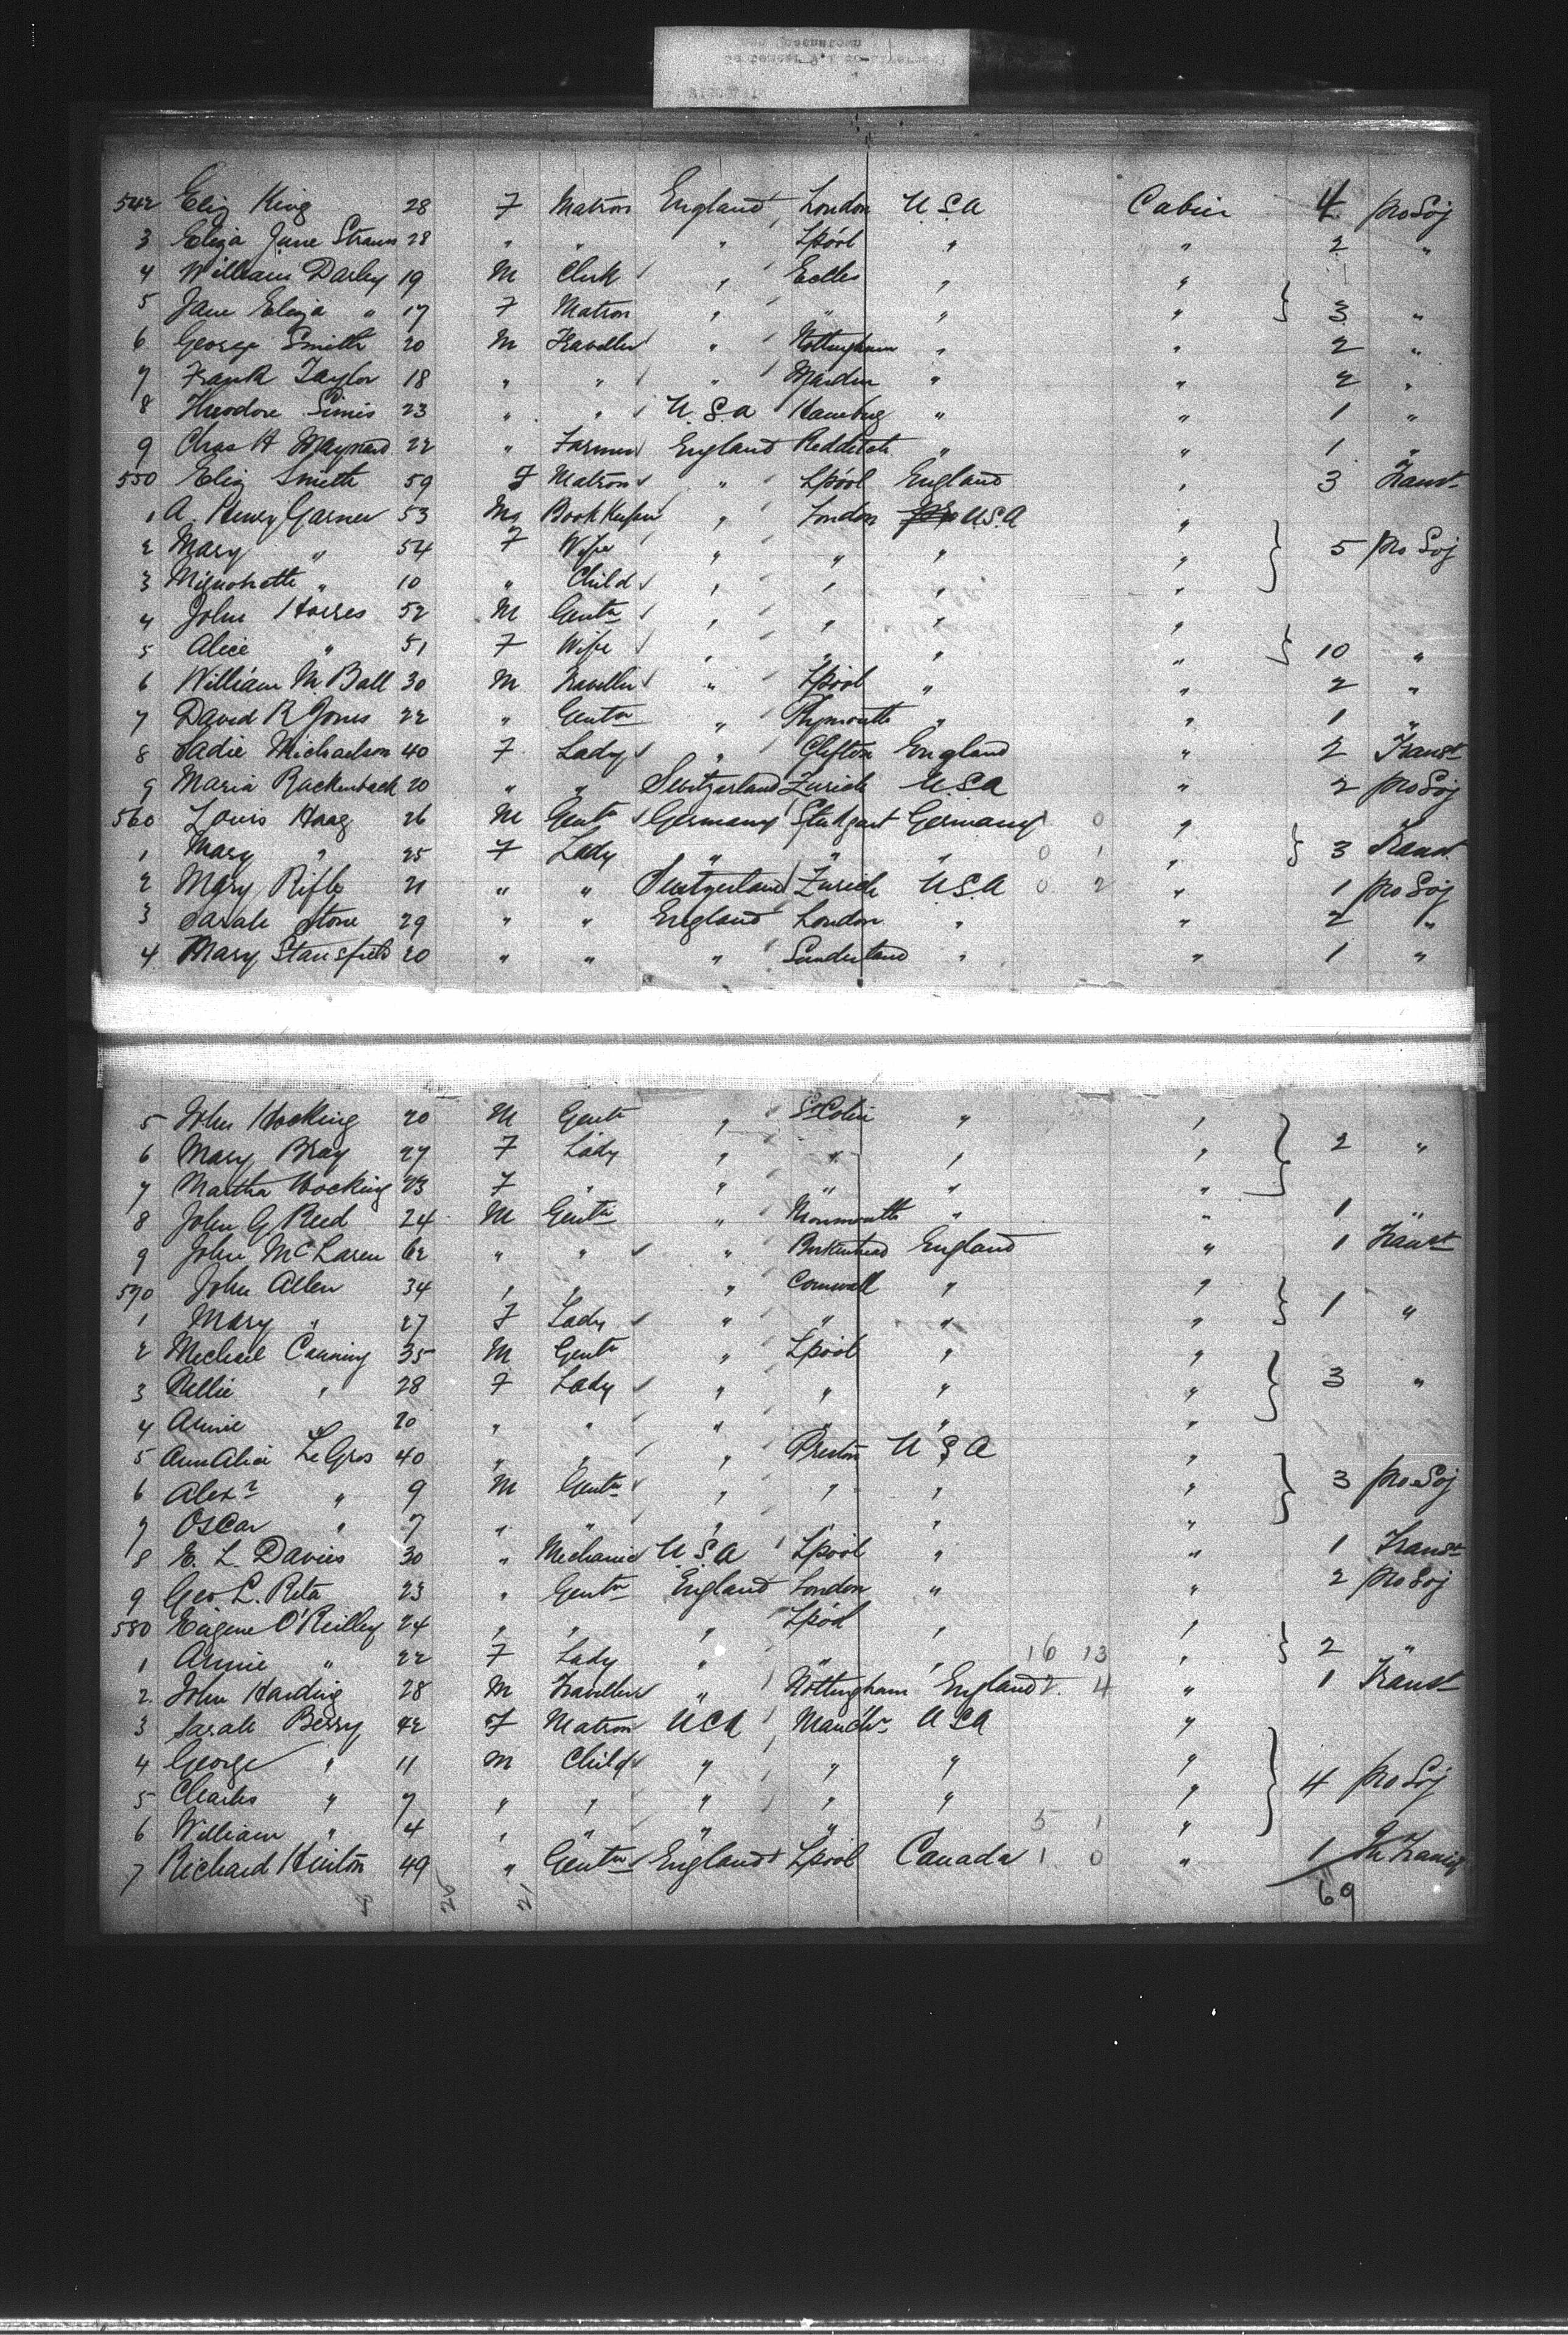 542 Eliz King 28 F Matron England London U.S.A Cabin 4 pro Soj
3 Eliza Jane Straun 28 " " " Lpool " " 2 "
4 William Darley 19 M Clerk " Eccles " "
5 Jane Eliza " 17 F Matron " " " " 3 "
6 George Smith 20 M Traveller " Nottingham " " 2 "
7 Frank Taylor 18 " " " " " 2 "
8 Theodore Simis 23 " " U.S.A Hamburg " " 1 "
9 Chas H Maynard 22 " Farmer England Redditch " " 1 "
550 Eliz Smith 59 F Matron " Lpool England " 3 Transt
1 A. Henry Garner 53 M Book Keeper " London U.S.A "
2 Mary " 54 F Wife " " " " 5 pro Soj
3 " 10 " Child " " " "
4 John Horres 52 M Gentn " " " "
5 Alice " 51 F Wife " " " " 10 "
6 William M. Ball 30 M Traveller " Lpool " " 2 "
7 David R Jones 22 " Gentn " Plymouth " " 1 "
8 Sadie Michaelson 40 F Lady " Clifton England " 2 Transt
9 Maria Rackenback 20 " " Switzerland Zurich U.S.A " 2 pro Soj
560 Louis Haag 26 M Gentn Germany Stutgart Germany 0 "
1 Mary " 25 F Lady " " " 0 1 " 3 Transt
2 Mary Rifle 21 " " Switzerland Zurich U.S.A 0 2 " 1 pro Soj
3 Sarah Stone 29 " " England London " " 2 "
4 Mary Stansfield 20 " " " Sunderland " " 1 "
5 John Hocking 20 M Gentn " " "
6 Mary Bray 27 F Lady " " " " 2 "
7 Martha Hocking 23 F " " " " "
8 John G Reed 24 M Gentn " Monmouth " " 1 "
9 John McLaren 62 " " " Birkenhead England " 1 Transt
570 John Allen 34 " " " Cornwall " "
1 Mary " 27 F Lady " " " " 1 "
2 Michael Canning 35 M Gentn " Lpool " "
3 Nellie " 28 F Lady " " " " 3 "
4 Annie 20 " " " " " "
5 Ann Alice Le Gros 40 " " " Preston U S A "
6 Alexr " 9 M Gentn " " " " 3 pro Soj
7 Oscar " 7 " " " " "
8 E. L. Davies 30 " Mechanic U.S.A Lpool " " 1 Transt
9 Geo L. Reta 23 " Gentn England London " " 2 pro Soj
580 Eugene O'Reilley 24 " " " Lpool " "
1 Annie " 22 F Lady " " " 16 13 " 2 "
2 John Harding 28 M Traveller " Nottingham England 2 4 " 1 Transt
3 Sarah Berry 42 F Matron U S A Manchr U S A "
4 George " 11 M Child " " " "
5 Charles " 7 " " " " " " 4 pro Soj
6 William " 4 " " " " 5 1 "
7 Richard Hinton 49 " Gentn England Lpool Canada 1 0 " 1 In Transit
69